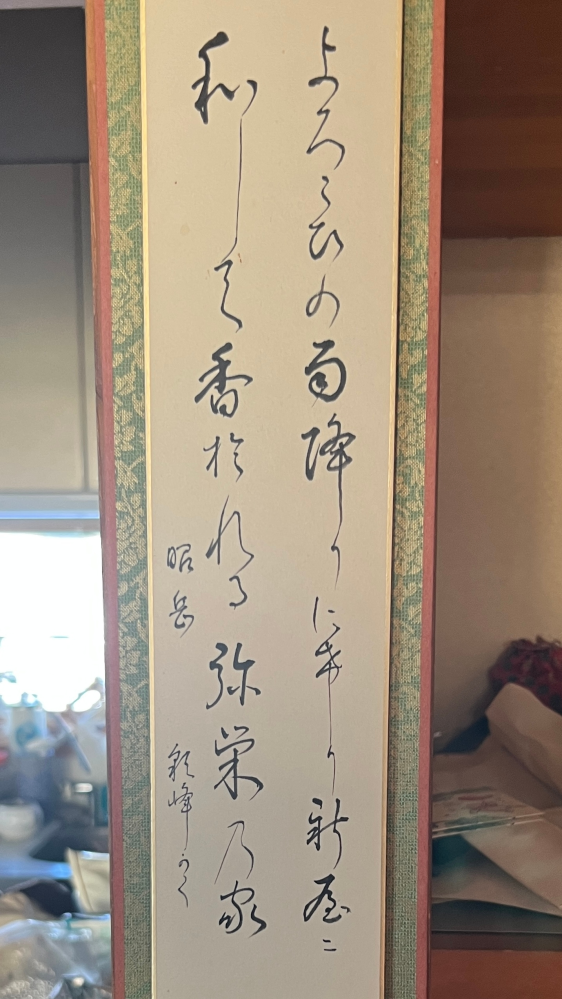 よろこびの雨降りにけり新屋に
和して香於れる弥栄乃家
昭岳
彩峰かく